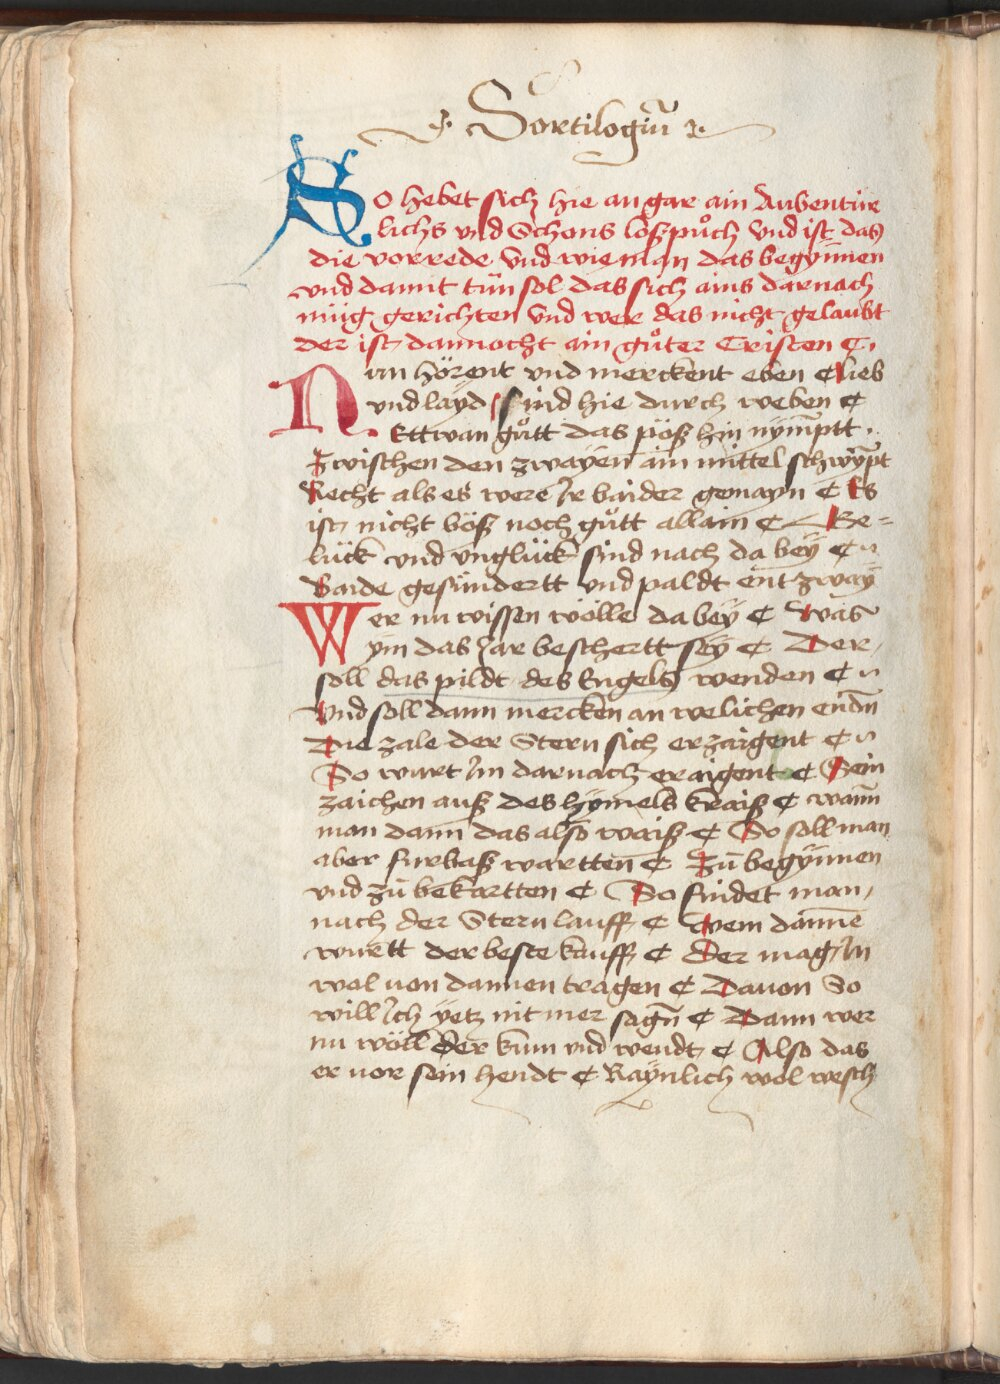 Sortilogiū
SO hebet sich hie an gar ain Aubentür
lichs vnd Schons loszpůch Vnd ist das
die vorrede Vnd wie man das begÿnnen
vnd damit tün sol das sich ains darnach
müg gerichten Vnd wer das nicht gelaubt
der ist dannocht ain gůter Cristen ¢
Nun hörent vnd merckent eben ¢ lieb
vnd laÿd sind hie durch weben ¢
Ettwan gůtt das pösz hin nÿmptt
Zwischen den zwaÿen ain mittel schwÿpt
Recht als es were Ir baider gemayn ¢ Es
ist nicht bösz noch gůtt allain ¢ Ge=
lück vnd vnglück sind nach da beÿ ¢
Baide gesündertt vnd paldt entzwaÿ
Wer nu wissen wölle da beÿ ¢ Was
ym das Jar beschertt seÿ ¢ Der
soll das pildt des Engels wenden ¢
Vnd soll dann mercken an welichen endn̄
Die zale der Stern sich erzaigent ¢
So wurt Im darnach eraigent ¢ Sein
zaichen ausz des hÿmels kraisz ¢ wann̄
man dann das also waisz ¢ So soll man
aber furbasz wartten ¢ Zů begÿnnen
vnd zů bekartten ¢ So findet man
nach der Stern lauff ¢ Wem danne
wurtt der beste kauff ¢ Der mag In
wol von dannen tragen ¢ Dauon So
will Ich ÿetz nit mer sagn̄ ¢ Dann wer
nu wöll der kum vnd wendt ¢ Also das
er vor sein hendt ¢ Raÿnlich wol wesch